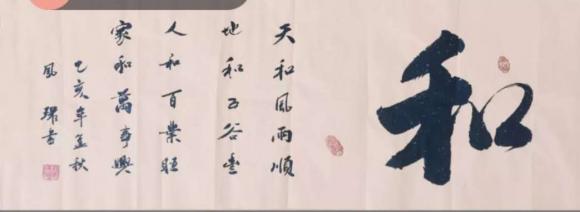 和
天和風雨順
地和五谷豊
人和百業旺
家和萬事興
乙亥年孟秋
風瑞書